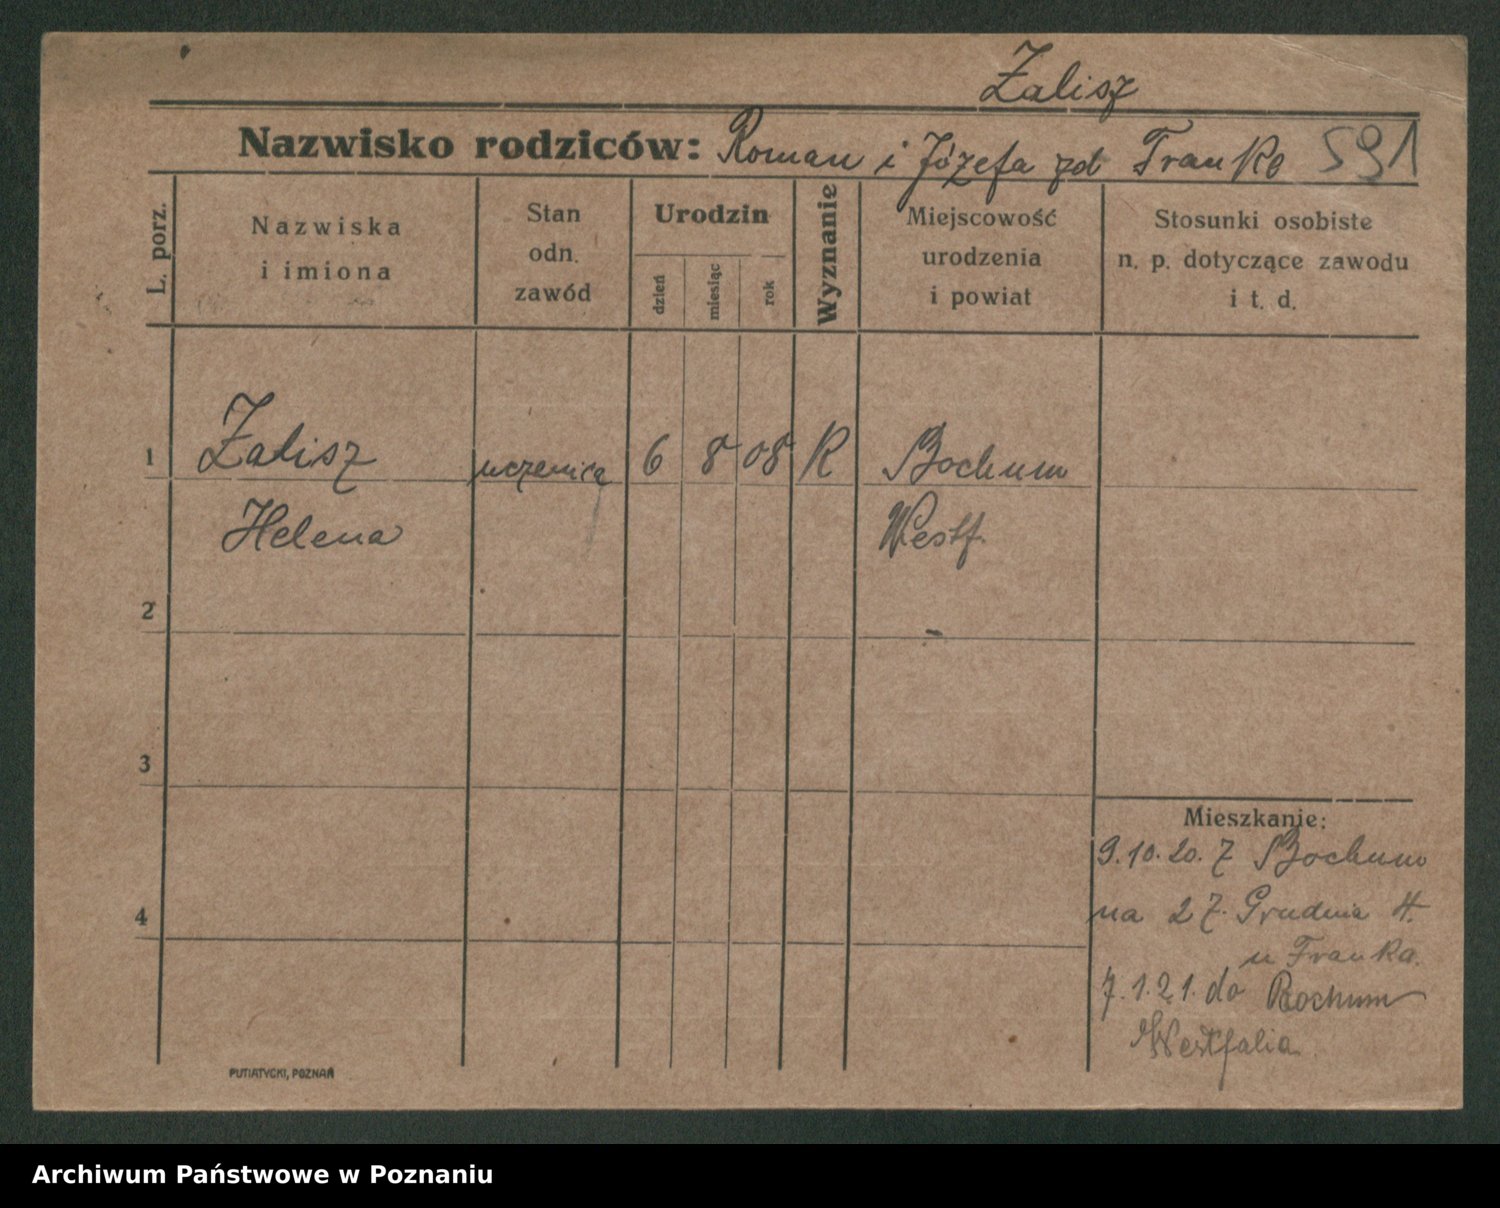 Żalisz
Nazwisko rodziców: Roman i Józefa zd Franke 591
L. porz.
Nazwiska
i imiona
Stan
odn.
zawód
Urodzin
dzień
miesiąc
rok
Wyznanie
Miejscowość
urodzenia
i powiat
Stosunki osobiste
n. p. dotyczące zawodu
i t. d.
1 Żalisz uczenica 6 8 08 R Bochum
Helena Westf.
2
3
4
Mieszkanie:
9.10.20. Z Bochum
na 27. Grudnia 4.
u Franka.
7.1.21. do Bochum
Westfalia.
PUTIATYCKI, POZNAŃ
Archiwum Państwowe w Poznaniu